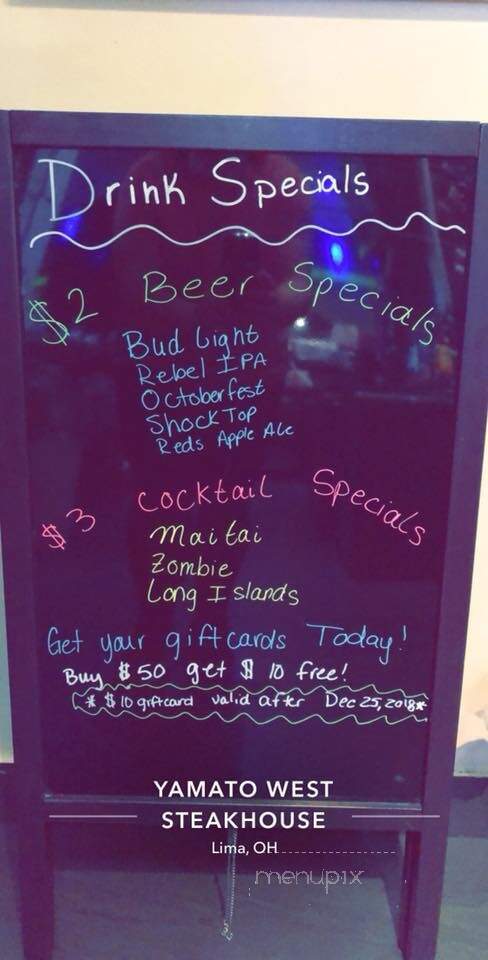 Drink Specials
$2 Beer Specials
Bud Light
Rebel IPA
Octoberfest
Shock Top
Reds Apple Ale
$3 Cocktail Specials
Maitai
Zombie
Long Islands
Get your giftcards Today!
Buy $50 get $10 free!
* $10 giftcard valid after Dec 25, 2018*
YAMATO WEST
STEAKHOUSE
Lima, OH
menupix